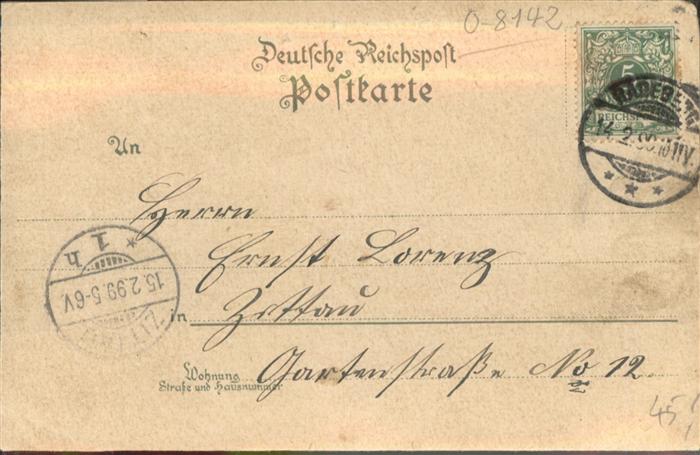 0-8142
Deutsche Reichspost
Postkarte
5
REICHSPOST
RADEBERG
14.2.99.10-11V.
* * *
An
Herrn
Ernst Lorenz
in Zittau
Wohnung
Straße und Hausnummer
Gartenstraße No 12.
* 1 h
15.2.99.5-6V.
ZITTAU
45,-